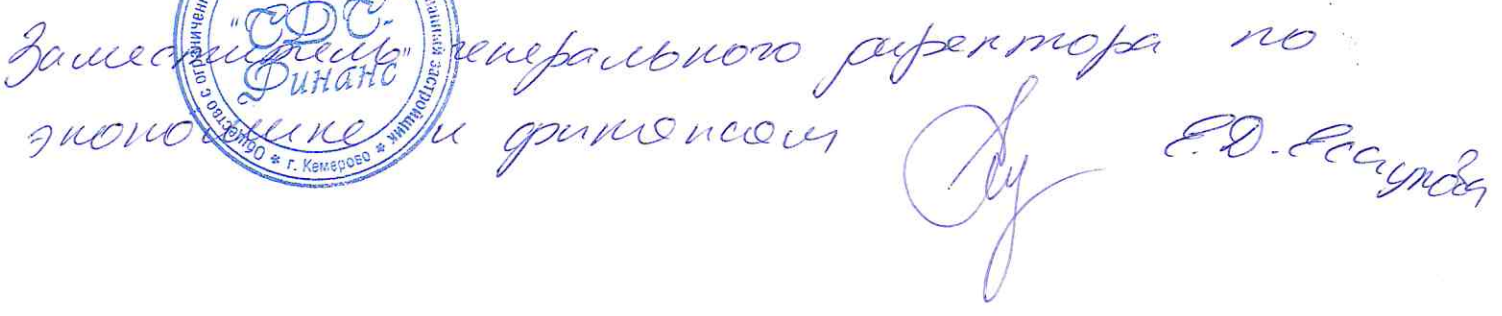 Заместитель генерального директора по
экономике и финансам Е.Д. Есаулова
"СДС-
Финанс"
Общество с ограничен
анный застройщик
* г. Кемерово *